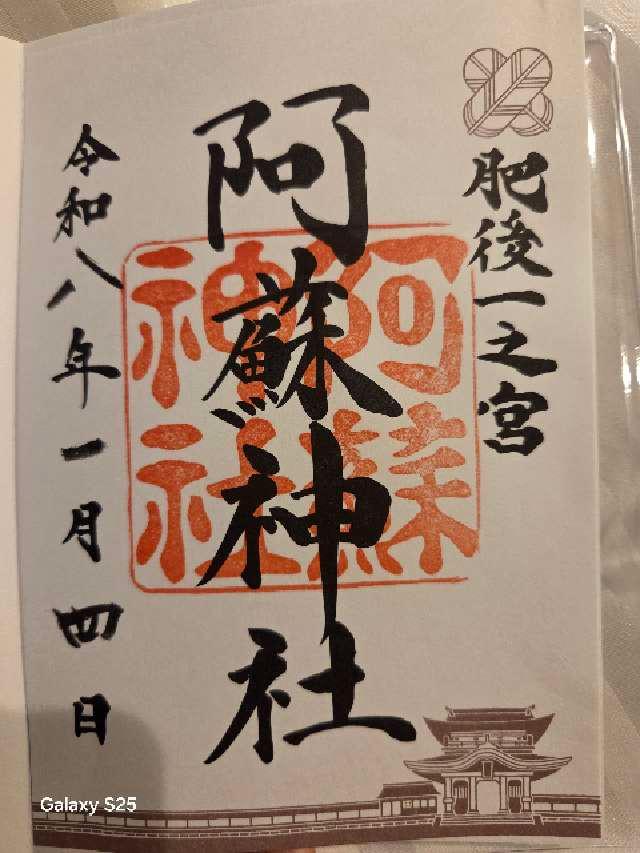 肥後一之宮
阿蘇神社
阿蘇
神社
令和八年一月四日
Galaxy S25